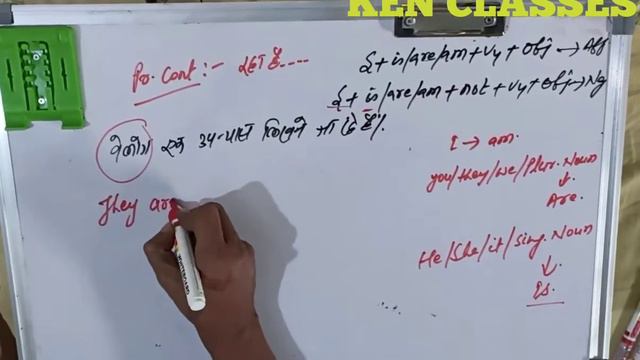 KEN CLASSES
Pr. Cont :- रहा है....
S + is/are/am + V4 + Obj → Aff
S + is/are/am + not + V4 + Obj → Ng
वे लोग एक उपन्यास लिखने जा रहे हैं।
I → am.
you/they/we/Plur. Noun
↓
Are.
They are
He/She/it/Sing. Noun
↓
Is.